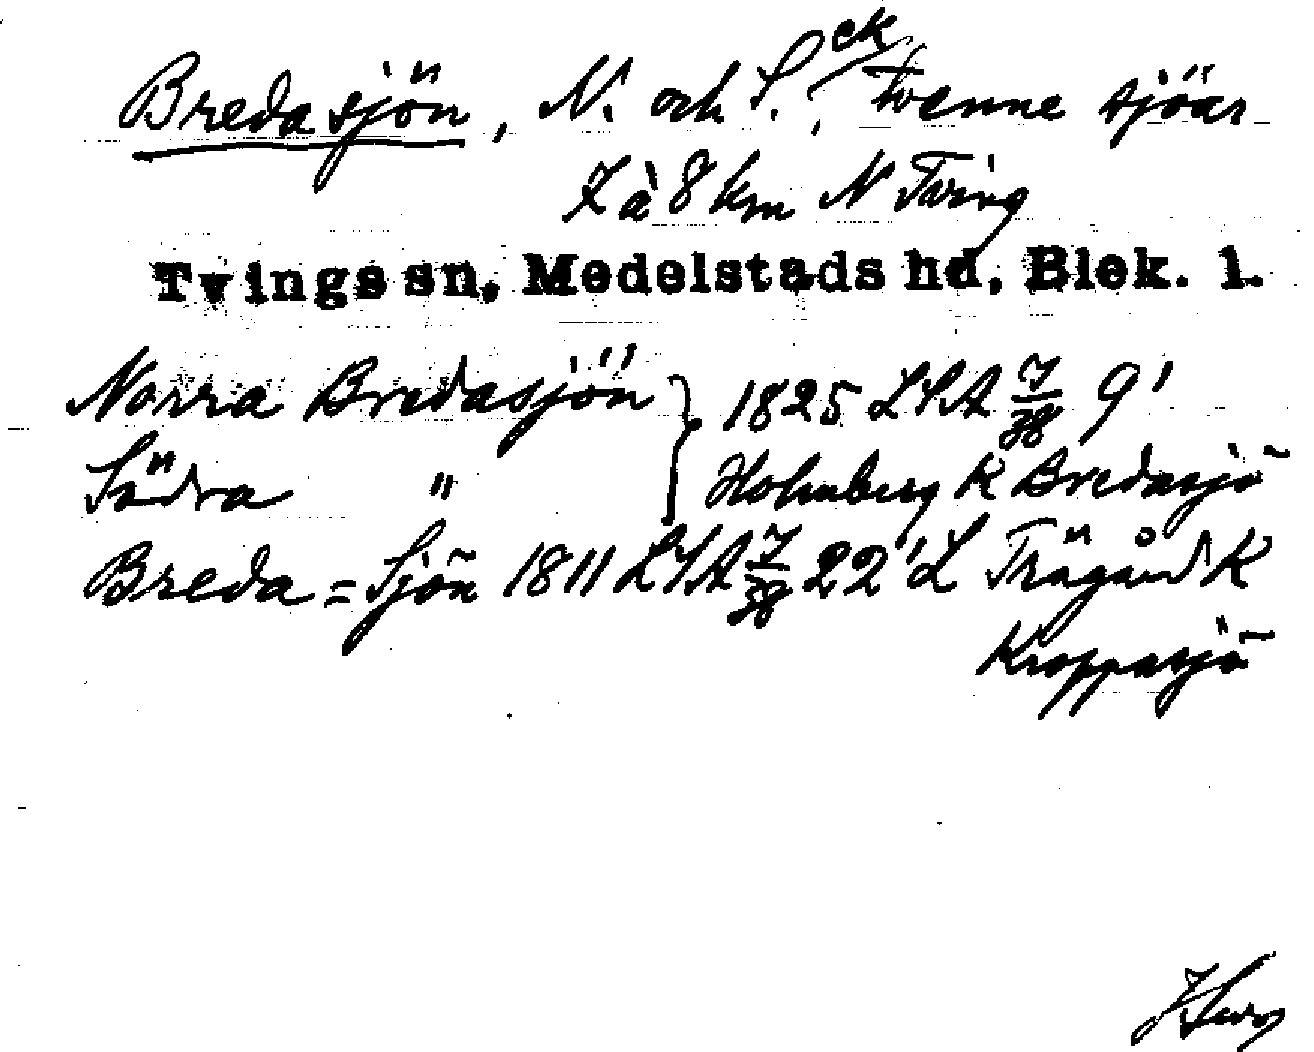 Bredasjön, N. och S., ek tvenne sjöar
7 à 8 km N Tving
Tvings sn, Medelstads hd, Blek. l.
Norra Bredasjön } 1825 LSA 7/38 9'
Södra " Holmberg K Bredasjö
Breda=Sjön 1811 LSA 7/38 22' L Trägård K
Kroppasjö